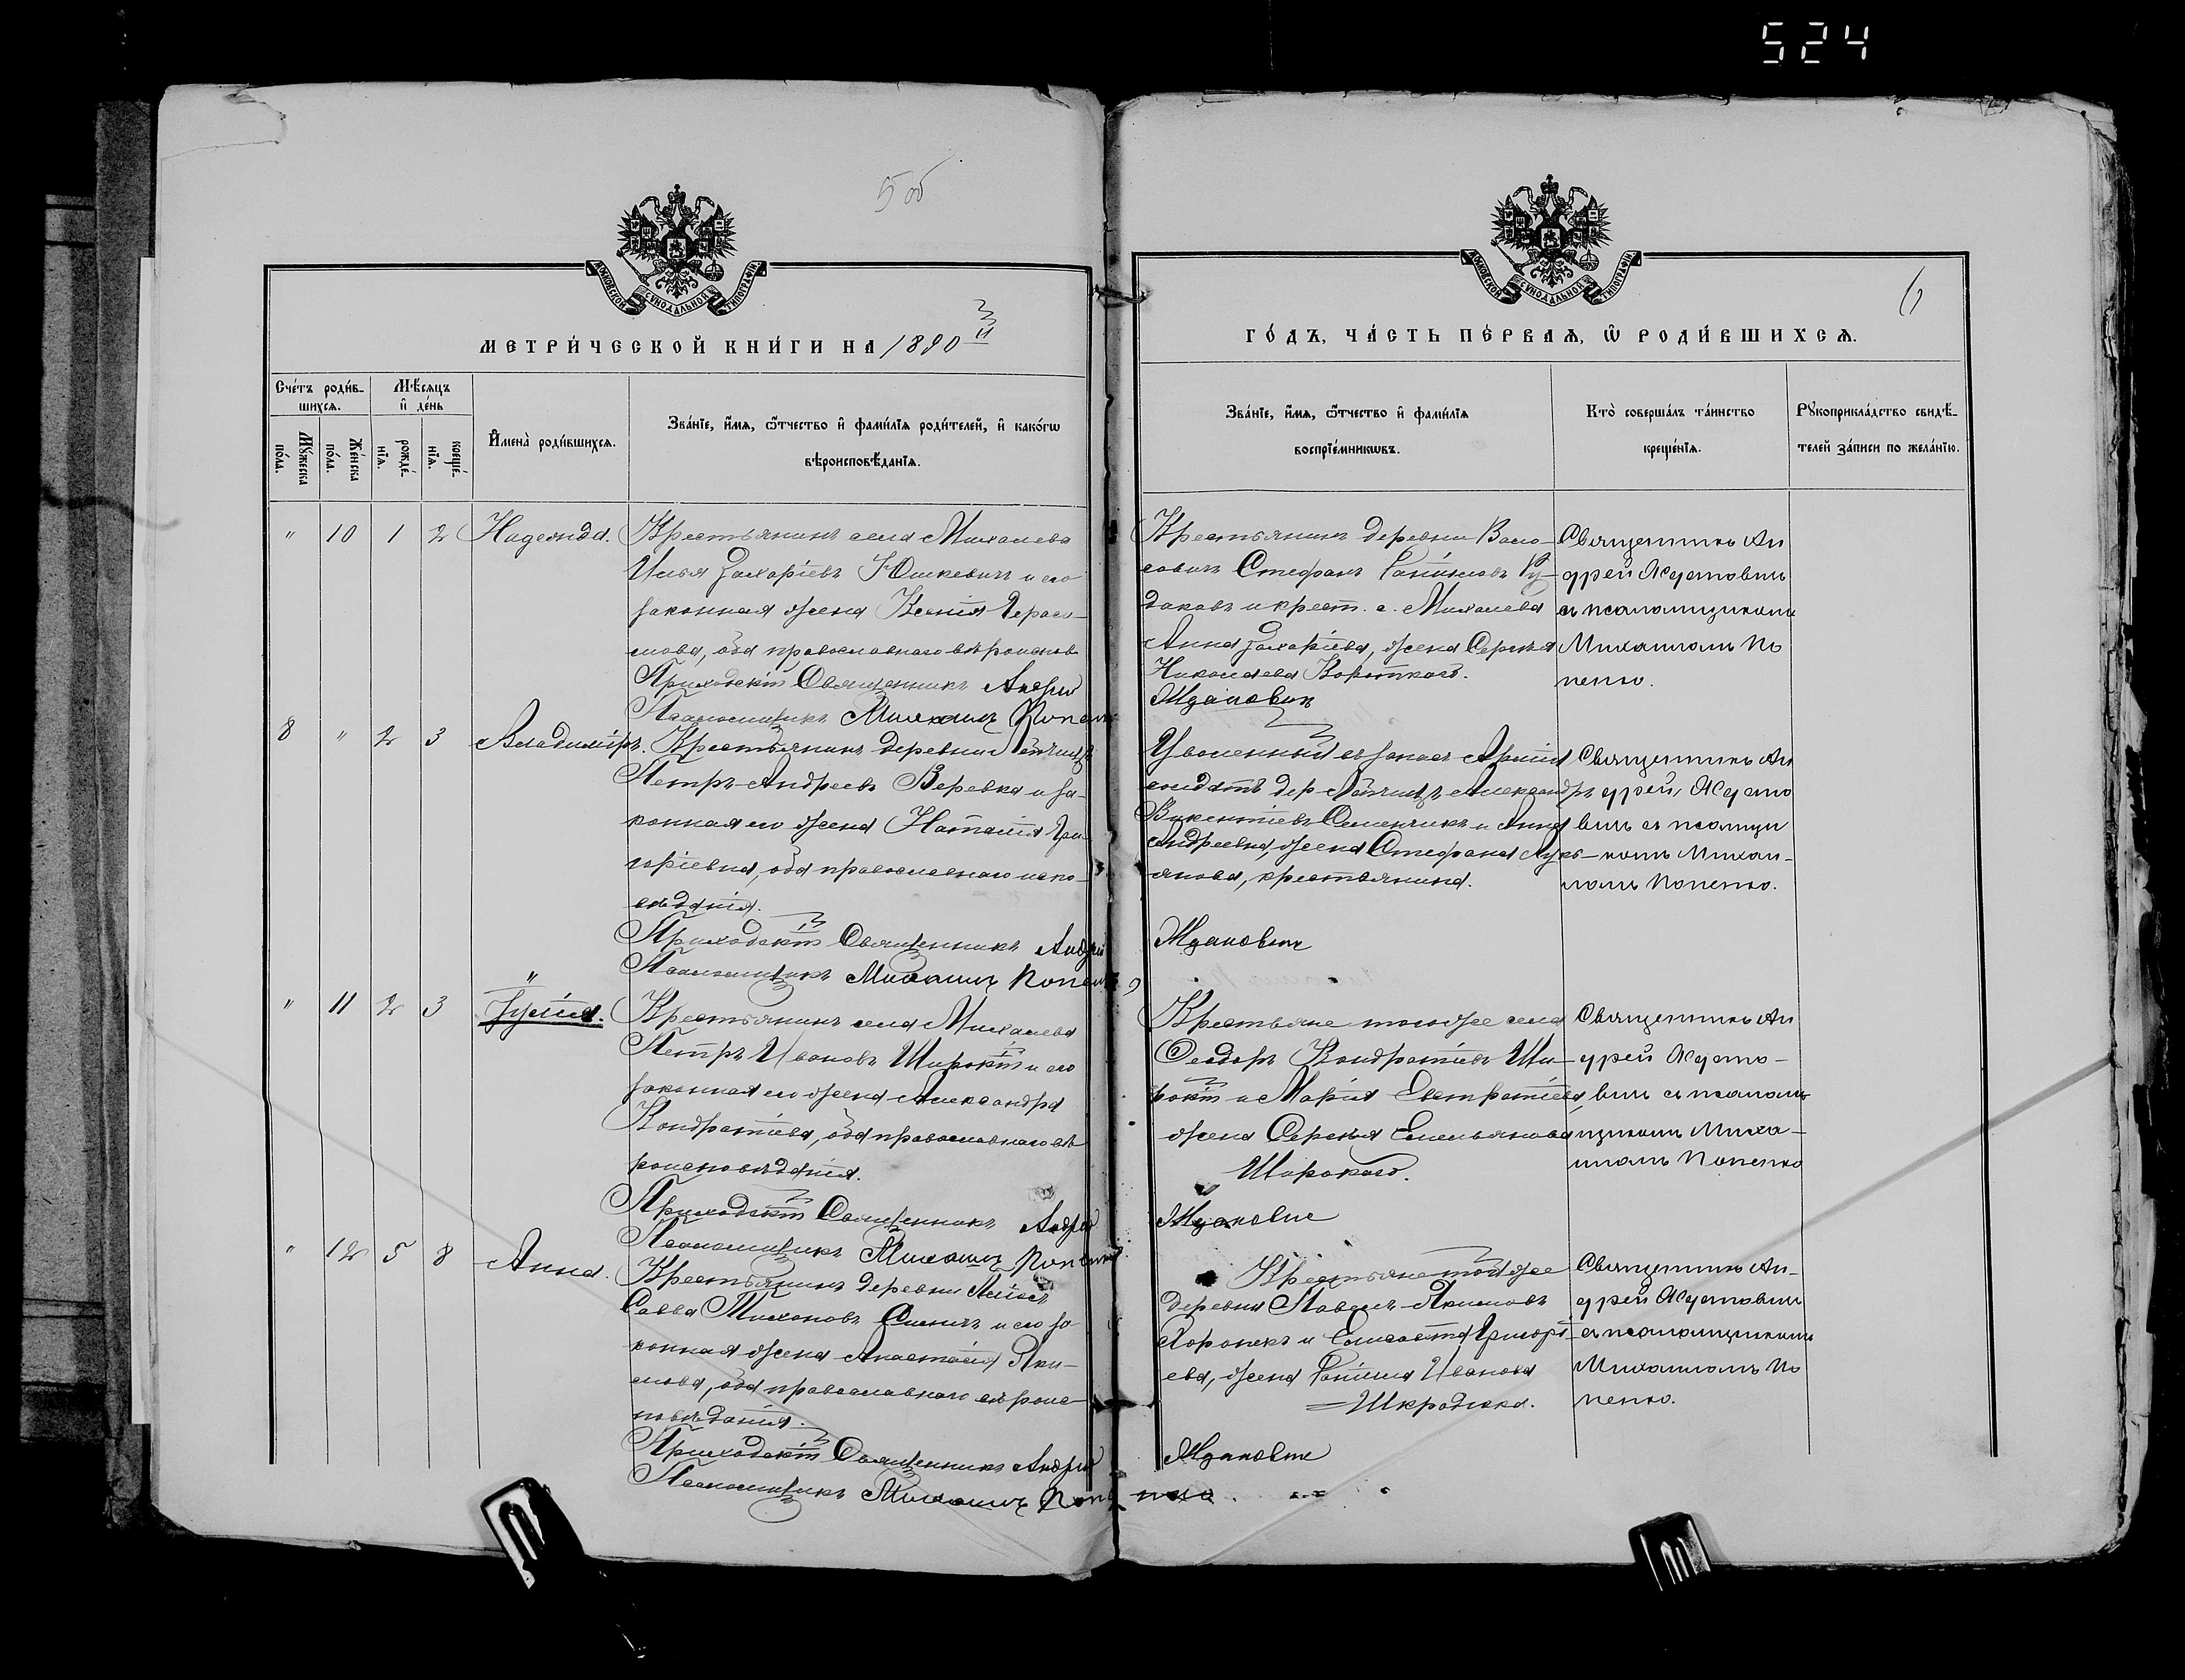 524
5 об
6
МОСКОВСКОЙ СѴНОДАЛЬНОЙ ТИПОГРАФІИ
МОСКОВСКОЙ СѴНОДАЛЬНОЙ ТИПОГРАФІИ
МЕТРИ́ЧЕСКОЙ КНИ́ГИ НА 1890й
ГО́ДЪ, ЧА́СТЬ ПЕ́РВАѦ, Ѽ РОДИ́ВШИХСѦ.
Сче́тъ роди́в-
шихсѧ.
Мѣ́сѧцъ
и҆ де́нь
Мꙋ́жеска
по́ла.
Же́нска
по́ла.
рожде́-
нїѧ.
креще́-
нїѧ.
И҆мена̀ роди́вшихсѧ.
Зва́нїе, и҆́мѧ, ѻ҆́тчество и҆ фами́лїѧ роди́телей, и҆ како́гѡ
вѣроисповѣ́данїѧ.
Зва́нїе, и҆́мѧ, ѻ҆́тчество и҆ фами́лїѧ
воспрїе́мникѡвъ.
Кто̀ соверша́лъ та́инство
креще́нїѧ.
Рꙋкоприкла́дство свидѣ́-
телей за́писи по жела́нїю.
" 10 1 2 Надежда.
Крестьянинъ села Михалева
Илья Захаріевъ Юшкевичъ и его
законная жена Ксенія Гераси-
мова, оба православнаго вѣроиспов
Приходскій Священникъ Андрей
Псаломщикъ Михаилъ Попенко
Крестьянинъ деревни
Стефанъ Даніиловъ
и крест. с. Михалева
Анна Захаріева, жена Сергѣя
Николаева Короткаго.
Ждановичъ
Священникъ Ан
дрей Ждановичъ
съ псаломщикомъ
Михаиломъ По
пенко.
8 " 2 3 Владиміръ.
Крестьянинъ деревни
Петръ Андреевъ Веревка и за-
конная его жена Наталія Гри-
горіевна, оба православнаго испо-
вѣданія.
Приходскій Священникъ Андрей
Псаломщикъ Михаилъ Попенко
Уволенный въ запасъ Арміи
солдатъ дер. Александръ
Викентіевъ Семенчикъ и Анна
Андреевна, жена Стефана Лукь-
янова, крестьянина.
Ждановичъ
Священникъ Ан
дрей Ждано
вичъ съ псаломщи
комъ Михаи-
ломъ Попенко.
" 11 2 3 Іулія.
Крестьянинъ села Михалева
Петръ Ивановъ Широкій и его
законная его жена Александра
Кондратіева, оба православнаго вѣ-
роисповѣданія.
Приходскій Священникъ Андрей
Псаломщикъ Михаилъ Попенко
Крестьяне тогоже села
Ѳеодоръ Кондратіевъ Ши-
рокій и Марія Евстратіева,
жена Сергѣя Емельянова
Широкаго.
Ждановичъ
Священникъ Ан
дрей Ждано-
вичъ съ псалом
щикомъ Миха-
иломъ Попенко
" 12 5 8 Анна.
Крестьянинъ деревни
Савва Тихоновъ и его за
конная жена Анастасія Яки-
мова, оба православнаго вѣроис-
повѣданія.
Приходскій Священникъ Андрей
Псаломщикъ Михаилъ Попенко
Крестьяне тойже
деревни Павелъ Якимовъ
и Елисавета Григорі-
ева, жена Даніила Иванова
Шкрадюка.
Ждановичъ
Священникъ Ан-
дрей Ждановичъ
съ псаломщикомъ
Михаиломъ По
пенко.